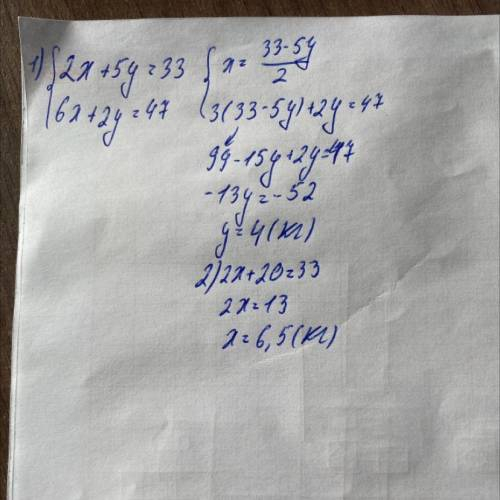 1) { 2x + 5y = 33 { x = 33-5y / 2
6x + 2y = 47 3(33-5y)+2y = 47
99 - 15y + 2y = 47
-13y = -52
y = 4 (кг)
2) 2x + 20 = 33
2x = 13
x = 6,5 (кг)